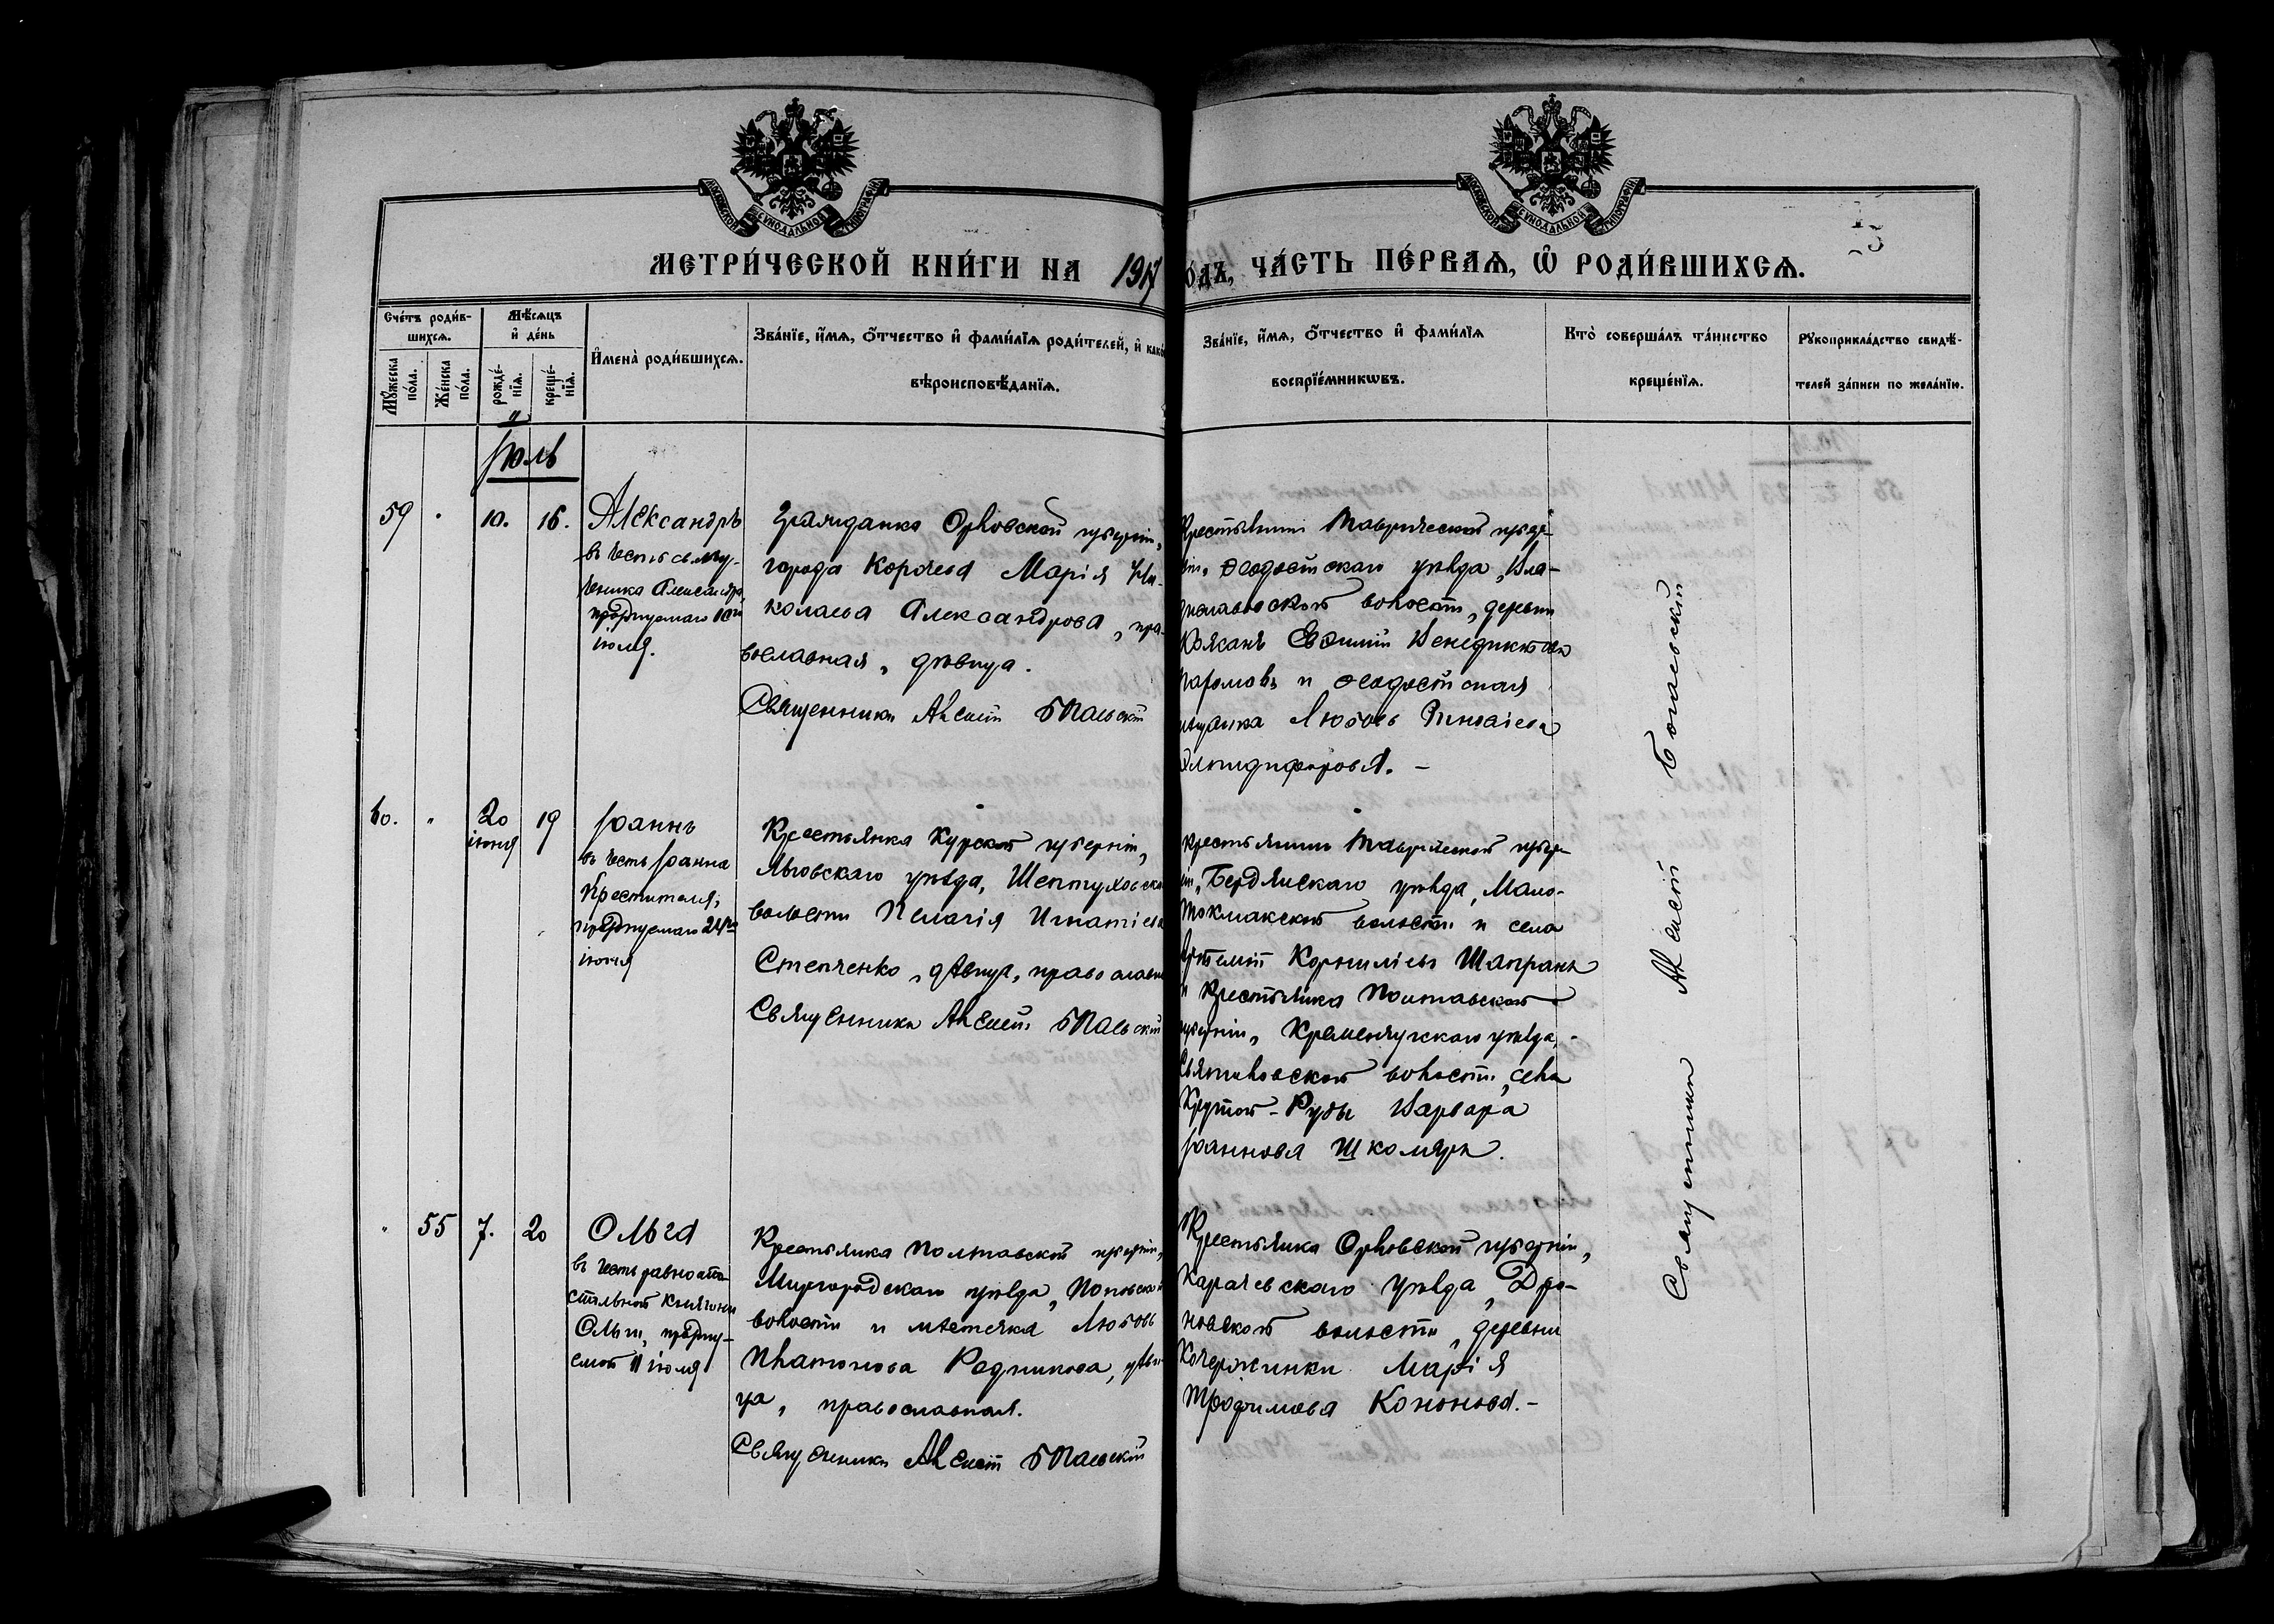 МОСКОВСКОЙ СѴНОДАЛЬНОЙ ТИПОГРАФІИ
МОСКОВСКОЙ СѴНОДАЛЬНОЙ ТИПОГРАФІИ
МЕТРИ́ЧЕСКОЙ КНИ́ГИ НА 1917
О́ДЪ, ЧА́СТЬ ПЕ́РВАѦ, Ѽ РОДИ́ВШИХСѦ.
Сче́тъ роди́в-
шихсѧ.
Мꙋ́жеска по́ла.
Же́нска по́ла.
Мѣ́сѧцъ
и҆ де́нь
рожде́-
нїѧ.
креще́-
нїѧ.
И҆мена̀ роди́вшихсѧ.
Зва́нїе, и҆́мѧ, ѻ҆́тчество и҆ фами́лїѧ роди́телей, и҆ како́
вѣроисповѣ́данїѧ.
Зва́нїе, и҆́мѧ, ѻ҆́тчество и҆ фами́лїѧ
воспрїе́мникѡвъ.
Кто̀ соверша́лъ та́инство
креще́нїѧ.
Рꙋкоприкла́дство свидѣ́-
телей за́писи по жела́нїю.
Іюль
59 " 10. 16. Александръ
въ честь св. му-
ченика Александра,
празднуемаго 10го
іюля.
Гражданка Орловской губерніи,
города Корчева Марія Ни-
колаева Александрова, пра-
вославная, дѣвица.
Священникъ Алексій Бѣльскій
Крестьянинъ Таврической губер-
ніи, Ѳеодосійскаго уѣзда, Вла-
диславовской волости, деревни
Евѳимій Венедиктовъ
и Ѳеодосійская
мѣщанка Любовь
60. " 20
іюня 19 Іоаннъ
въ честь Іоанна
Крестителя,
празднуемаго 24го
іюня
Крестьянка Курской губерніи,
Льговскаго уѣзда, Шептуховской
волости Пелагія Игнатіева
Степченко, дѣвица, православн
Священникъ Алексій Бѣльскій
Крестьянинъ Таврической губер-
ніи, Бердянскаго уѣзда, Мало-
Токмакской волости и села
Артемій Корниліевъ Шапранъ
и крестьянка Полтавской
губерніи, Кременчугскаго уѣзда,
волости, села
Крутой-Руды Варвара
Іоаннова Школяръ.
" 55 7. 20 Ольга
въ честь равноапо-
стольной княгини
Ольги, праздну-
емой 11 іюля
Крестьянка Полтавской губерніи,
Миргородскаго уѣзда, Поповской
волости и мѣстечка Любовь
Платонова Родникова, дѣви-
ца, православная.
Священникъ Алексій Бѣльскій
Крестьянка Орловской губерніи,
Карачевскаго уѣзда, Дро-
новской волости, деревни
Кочержинки Марія
Трофимова Кононова.-
Священникъ Алексій